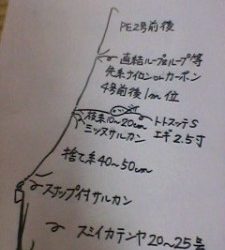 PE2号前後
直結ループ&ループ等
先糸ナイロンorカーボン
4号前後1m位
枝糸10~20cm
トトスッテS
ミツマタサルカン
エギ2.5寸
捨て糸40~50cm
スナップ付サルカン
スミイカテンヤ20~25号